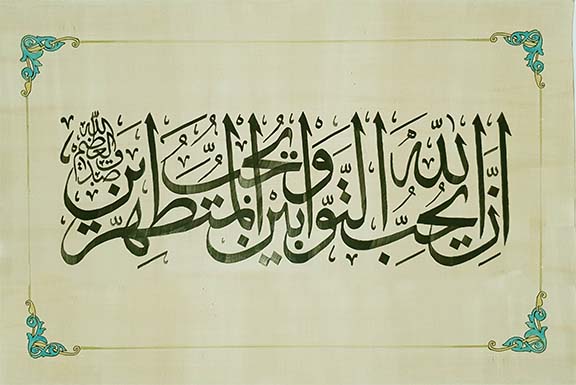 إِنَّ اللّٰهَ يُحِبُّ التَّوَّابِينَ وَيُحِبُّ الْمُتَطَهِّرِينَ
صدق الله العظيم